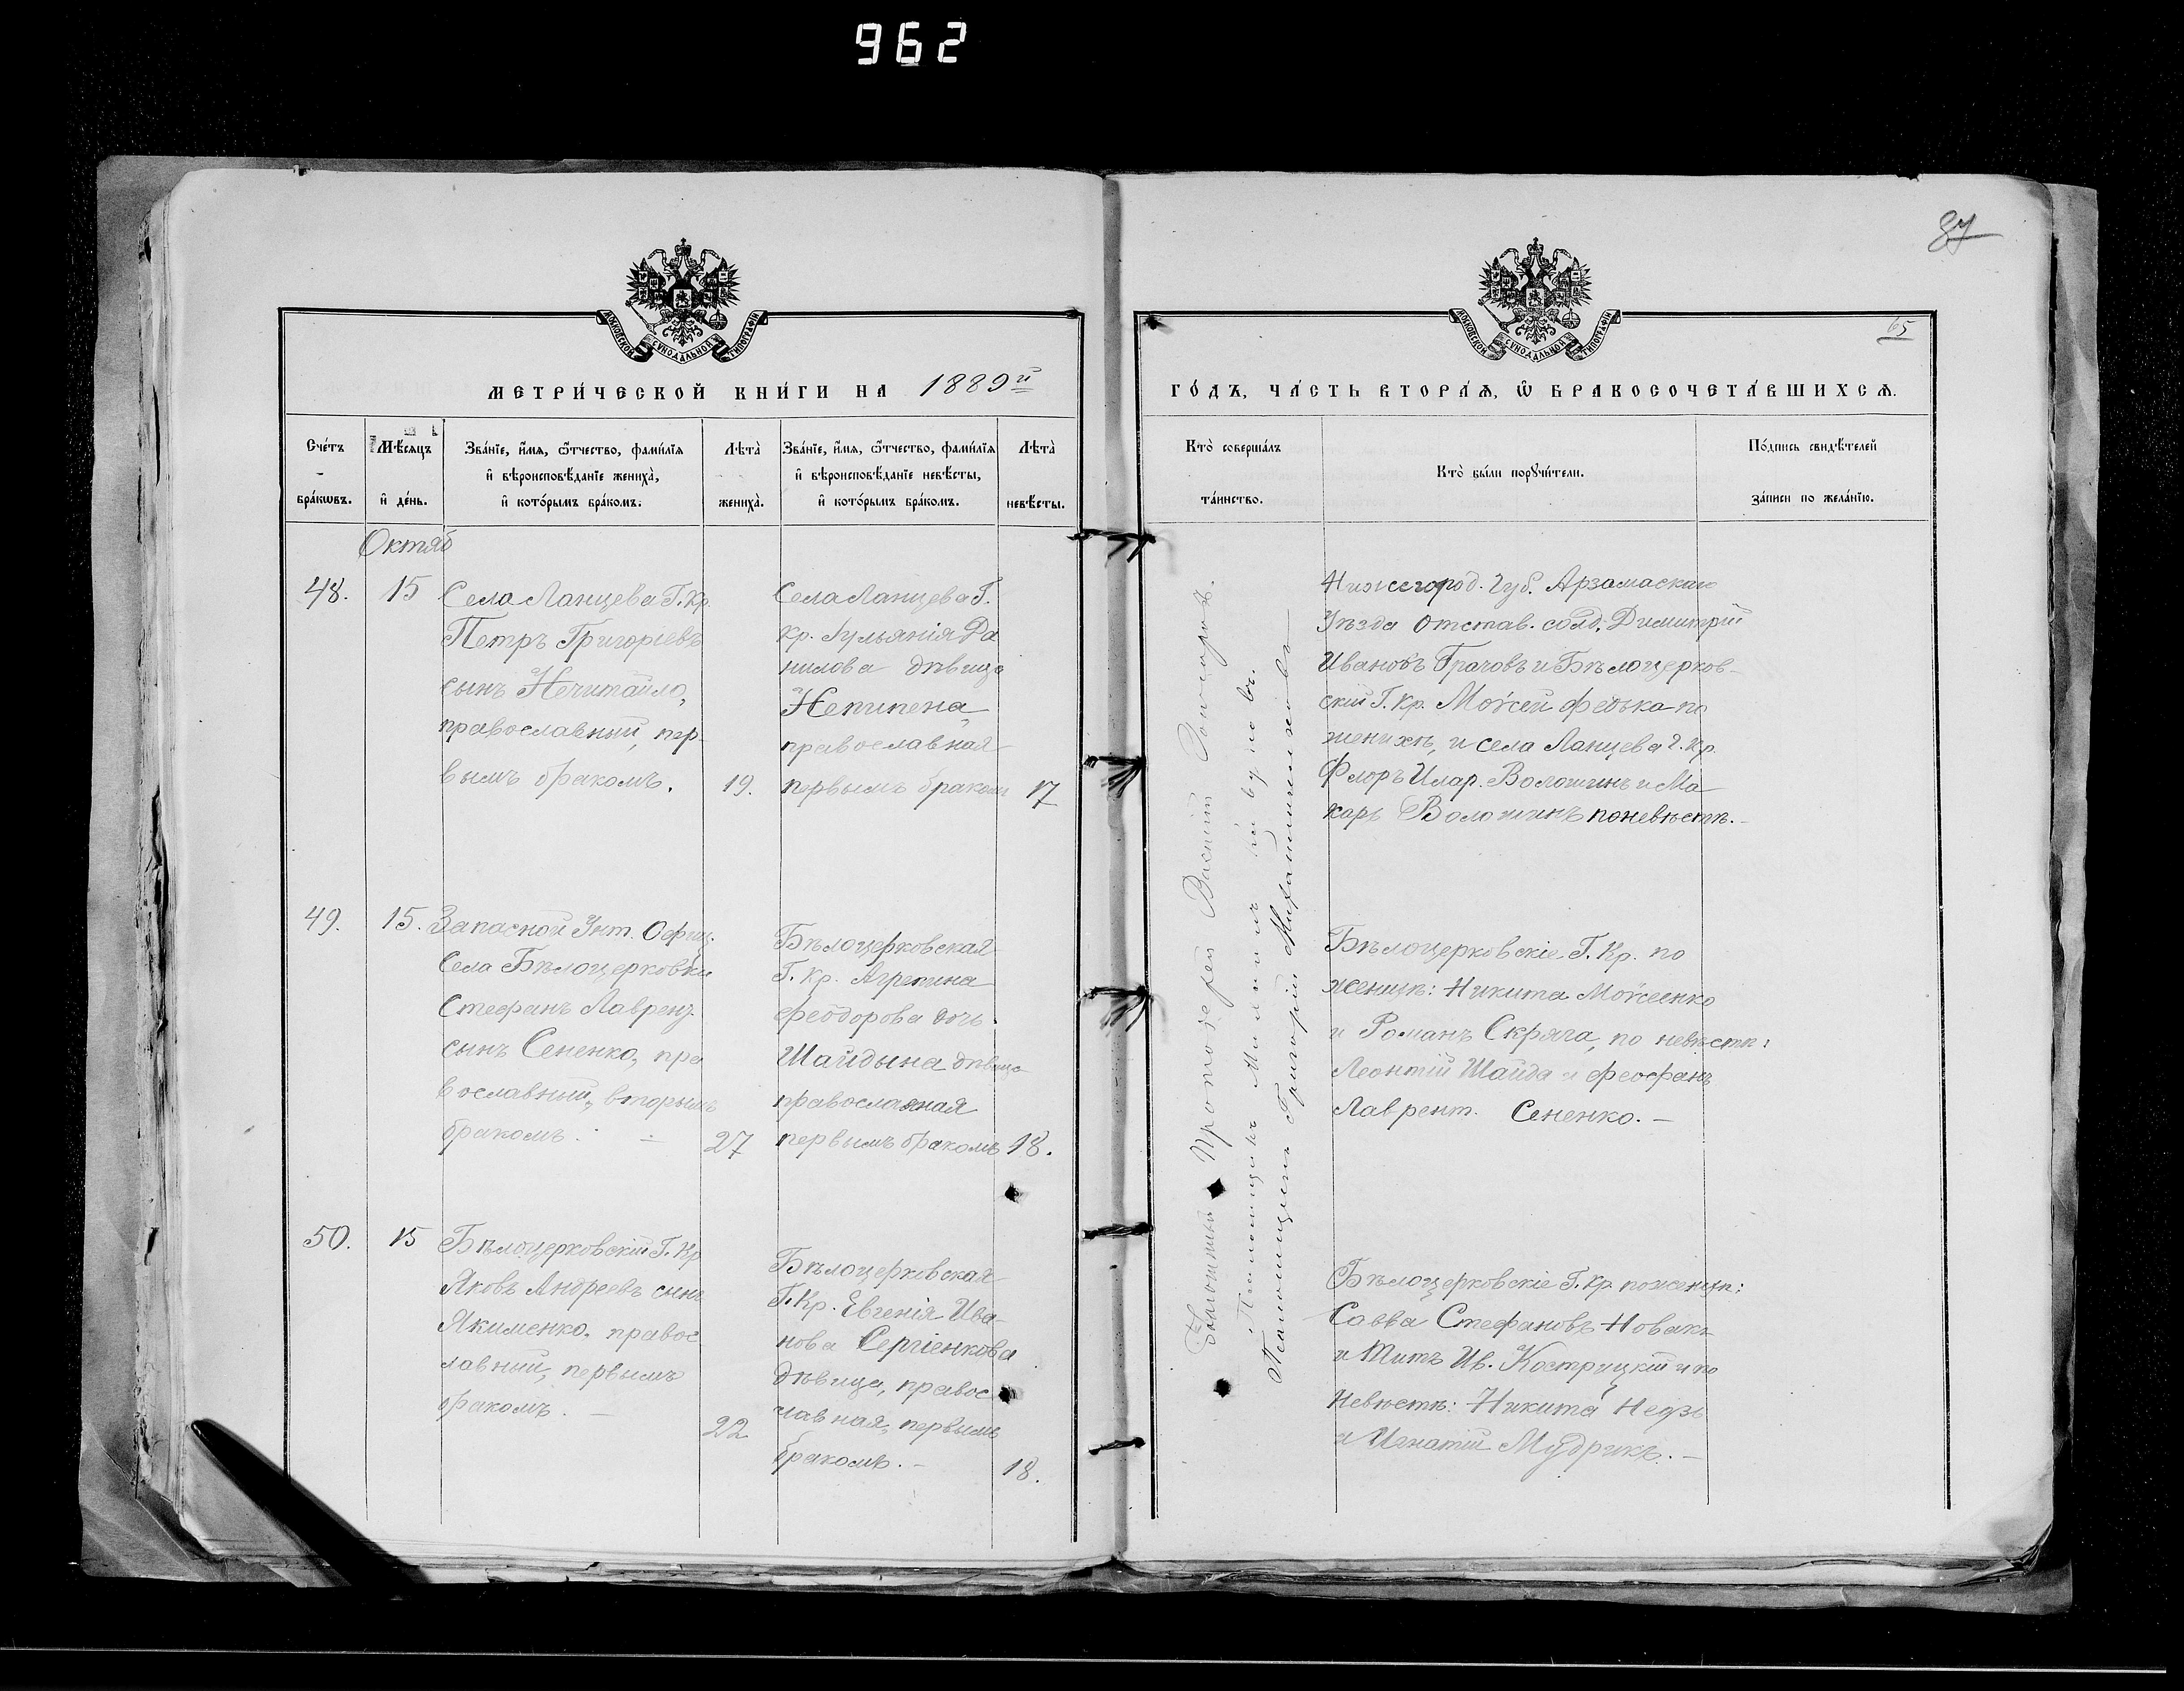 962
87
65
МОСКОВСКОЙ СѴНОДАЛЬНОЙ ТИПОГРАФІИ
МОСКОВСКОЙ СѴНОДАЛЬНОЙ ТИПОГРАФІИ
МЕТРИ́ЧЕСКОЙ КНИ́ГИ НА 1889й
ГО́ДЪ, ЧА́СТЬ ВТОРА́Я, Ѿ БРАКОСОЧЕТА́ВШИХСЯ.
Сче́тъ бра́кѡвъ.
Мѣ́сяцъ и҆ де́нь.
Зва́нїе, и҆́мя, ѻ҆́тчество, фами́лїя
и҆ вѣроисповѣ́данїе жениха̀,
и҆ кото́рымъ бра́комъ.
Лѣта̀ жениха̀.
Зва́нїе, и҆́мя, ѻ҆́тчество, фами́лїя
и҆ вѣроисповѣ́данїе невѣ́сты,
и҆ кото́рымъ бра́комъ.
Лѣта̀ невѣ́сты.
Кто̀ соверша́лъ
та́инство.
Кто̀ бы́ли порꙋчи́тели.
По́дпись свидѣ́телей
за́писи по жела́нїю.
Октяб
48.
15
Села Ланцева Г. Кр.
Петръ Григоріевъ
сынъ Нечитайло,
православный, пер
вымъ бракомъ.
19.
Села Ланцева Г.
Кр. Іульянія Да
нилова дѣвица
Непипена,
православная
первымъ бракомъ
17
Нижегород. Губ. Арзамаскаго
Уѣзда Отстав. солд. Димитрій
Ивановъ Грачовъ и Бѣлоцерков-
скій Г. Кр. Моѵсей Федька по
женихѣ, и села Ланцева Г. Кр.
Флоръ Илар. Волошинъ и Ма
каръ Волошинъ по невѣстѣ.-
49.
15.
Запасной Унт. Офиц.
Села Бѣлоцерковки
Стефанъ Лаврент.
сынъ Сененко, пра
вославный, вторымъ
бракомъ.
27
Бѣлоцерковская
Г. Кр. Агрепина
Феодорова дочь
Шайдына дѣвица
православная
первымъ бракомъ
18.
Бѣлоцерковскіе Г. Кр. по
женихѣ: Никита Моѵсеенко
и Романъ Скряга, по невѣстѣ:
Леонтій Шайда и Феофанъ
Лаврент. Сененко. —
50.
15
Бѣлоцерковскій Г. Кр
Яковъ Андреевъ сынъ
Якименко, правос
лавный, первымъ
бракомъ. —
22
Бѣлоцерковская
Г. Кр. Евгенія Ива
нова Сергіенкова
дѣвица, правос
лавная, первымъ
бракомъ. —
18.
Бѣлоцерковскіе Г. Кр. по женихѣ:
Савва Стефановъ Новакъ
и Титъ Ив. Кострицкій и по
невѣстѣ: Никита Недзь
и Игнатій Мудрикъ. —
Протоіерей Василій
Псаломщикъ
Псаломщикъ Григорій